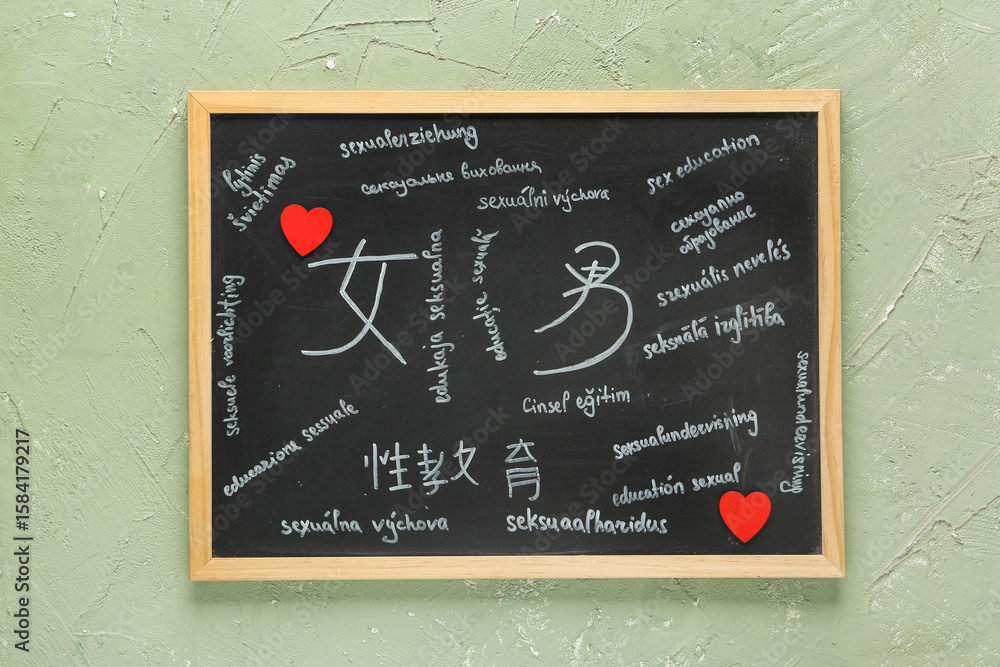 sexualerziehung
сексуальне виховання
sexuálni výchova
sex education
lytinis
švietimas
сексуално
образование
edukaja seksualna
educaţie sexuală
女
男
sexuális nevelés
seksuālā izglītība
seksuele voorlichting
Cinsel eğitim
sexualundeevisning
educazione sessuale
seksualundeevisning
性教育
éducation sexual
sexuálna výchova
seksuaalharidus
Adobe Stock | #1584179217